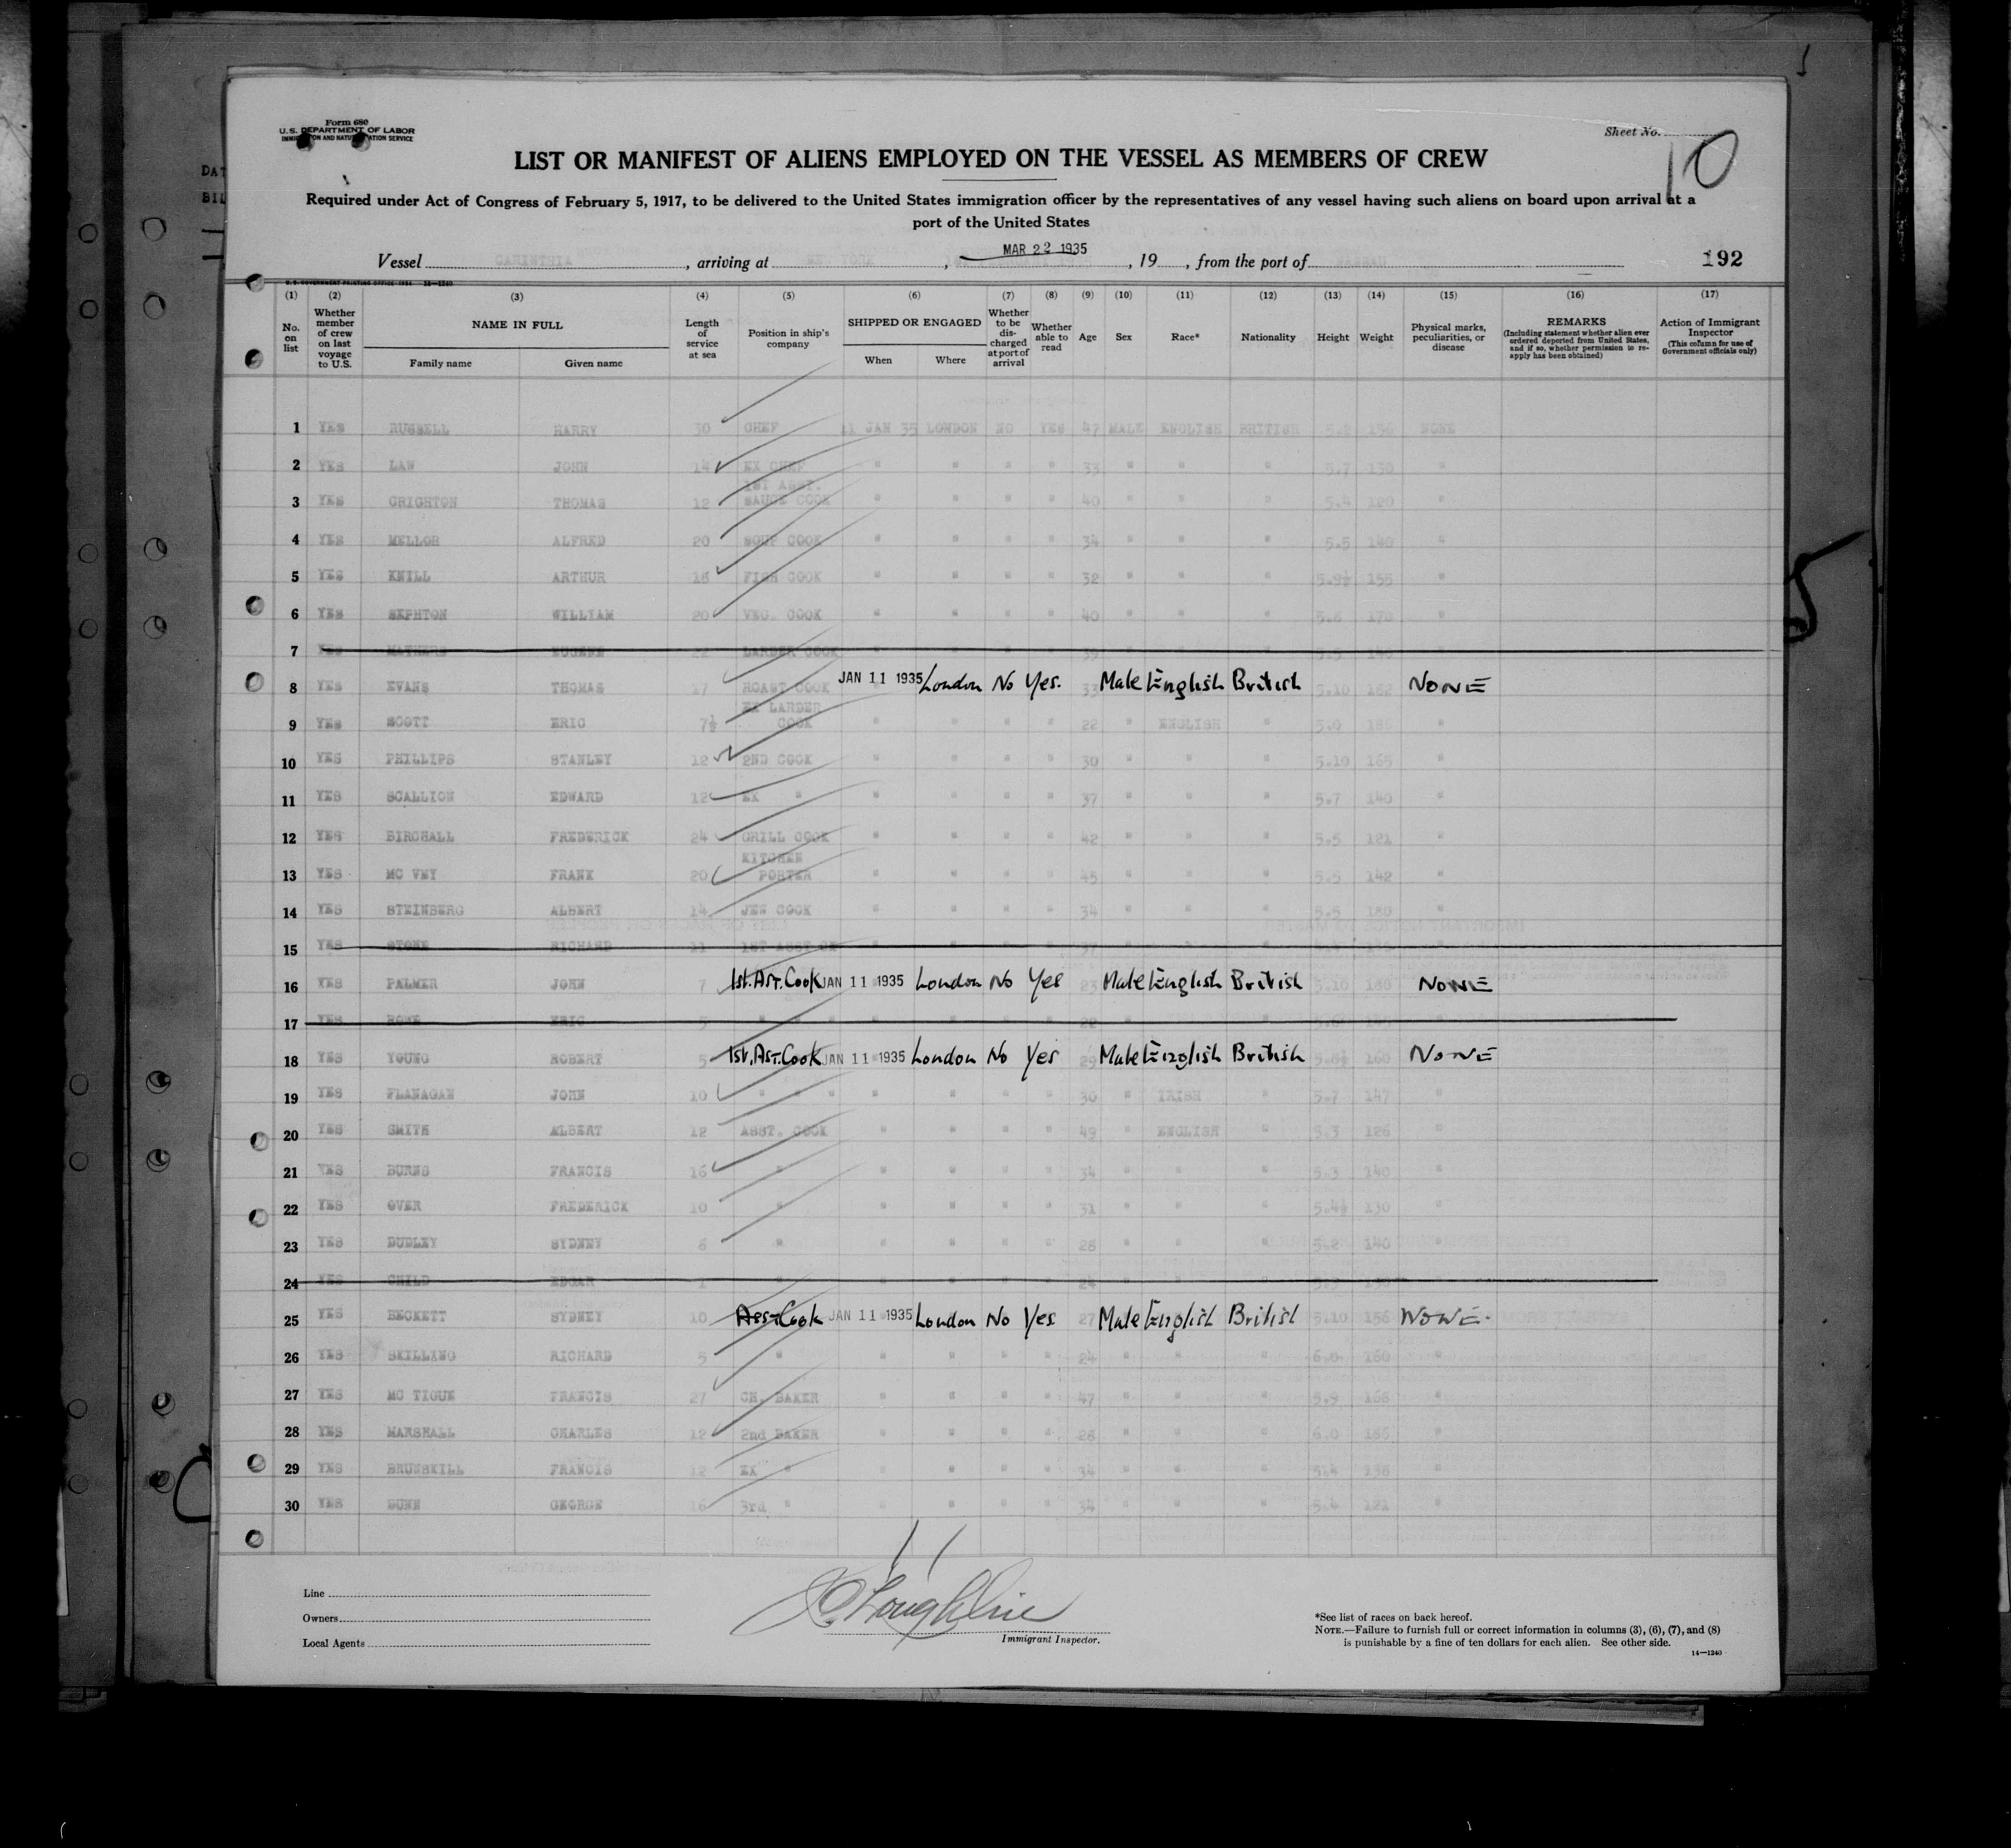 Form 680
U.S. DEPARTMENT OF LABOR
IMMIGRATION AND NATURALIZATION SERVICE
Sheet No. 10
LIST OR MANIFEST OF ALIENS EMPLOYED ON THE VESSEL AS MEMBERS OF CREW
Required under Act of Congress of February 5, 1917, to be delivered to the United States immigration officer by the representatives of any vessel having such aliens on board upon arrival at a
port of the United States
MAR 22 1935
Vessel CARINTHIA, arriving at NEW YORK, , 19 , from the port of NASSAU 192
(1) (2) (3) (4) (5) (6) (7) (8) (9) (10) (11) (12) (13) (14) (15) (16) (17)
No. on list Whether member of crew on last voyage to U.S. NAME IN FULL Family name Given name Length of service at sea Position in ship's company SHIPPED OR ENGAGED When Where Whether to be discharged at port of arrival Whether able to read Age Sex Race* Nationality Height Weight Physical marks, peculiarities, or disease REMARKS (Including statement whether alien ever ordered deported from United States, and if so, whether permission to reapply has been obtained) Action of Immigrant Inspector (This column for use of Government officials only)
1 YES RUSSELL HARRY 30 CHEF 11 JAN 35 LONDON NO YES 47 MALE ENGLISH BRITISH 5.2 156 NONE
2 YES LAW JOHN 14 EX CHEF " " " " 33 " " " 5.7 130 "
3 YES CRIGHTON THOMAS 12 1ST ASST. SAUCE COOK " " " " 40 " " " 5.4 120 "
4 YES MELLOR ALFRED 20 SOUP COOK " " " " 34 " " " 5.5 140 "
5 YES KNILL ARTHUR 16 FISH COOK " " " " 32 " " " 5.9½ 155 "
6 YES SEPHTON WILLIAM 20 VEG. COOK " " " " 40 " " " 5.6 170 "
7 YES MATHERS EUGENE 22 LARDER COOK 39 5.5 140
8 YES EVANS THOMAS 17 ROAST COOK JAN 11 1935 London No Yes. 33 Male English British 5.10 162 NONE
9 YES SCOTT ERIC 7½ EX LARDER COOK " " " " 22 " ENGLISH " 5.0 186 "
10 YES PHILLIPS STANLEY 12 2ND COOK " " " " 30 " " " 5.10 165 "
11 YES SCALLION EDWARD 12 EX " " " " " 37 " " " 5.7 140 "
12 YES BIRCHALL FREDERICK 24 GRILL COOK " " " " 42 " " " 5.5 121 "
13 YES MC VEY FRANK 20 KITCHEN PORTER " " " " 45 " " " 5.5 142 "
14 YES STEINBERG ALBERT 14 JEW COOK " " " " 34 " " " 5.5 180 "
15 YES STONE RICHARD 11 1ST ASST CK 37
16 YES PALMER JOHN 7 1st. Ast. Cook JAN 11 1935 London No Yes 23 Male English British 5.10 180 NONE
17 YES ROWE ERIC 5 " " " 22
18 YES YOUNG ROBERT 5 1st. Ast. Cook JAN 11 1935 London No Yes 29 Male English British 5.6½ 160 NONE
19 YES FLANAGAN JOHN 10 " " " " " " " 30 " IRISH " 5.7 147 "
20 YES SMITH ALBERT 12 ASST. COOK " " " " 49 " ENGLISH " 5.3 126 "
21 YES BURNS FRANCIS 16 " " " " " 34 " " " 5.3 140 "
22 YES OVER FREDERICK 10 " " " " " 31 " " " 5.4½ 130 "
23 YES DUDLEY SYDNEY 6 " " " " " 26 " " " 5.2 140 "
24 YES CHILD EDGAR 1 24
25 YES BECKETT SYDNEY 10 Asst Cook JAN 11 1935 London No Yes 27 Male English British 5.10 156 NONE.
26 YES SKILLING RICHARD 5 " " " " " 24 " " " 6.0 160 "
27 YES MC TIGUE FRANCIS 27 CH. BAKER " " " " 47 " " " 5.9 168 "
28 YES MARSHALL CHARLES 12 2nd BAKER " " " " 26 " " " 6.0 186 "
29 YES BRUNSKILL FRANCIS 12 EX " " " " " 34 " " " 5.4 138 "
30 YES DUNN GEORGE 16 3rd " " " " " 34 " " " 5.4 121 "
Line
Owners
Local Agents
Immigrant Inspector.
*See list of races on back hereof.
NOTE.—Failure to furnish full or correct information in columns (3), (6), (7), and (8)
is punishable by a fine of ten dollars for each alien. See other side.
14—1240